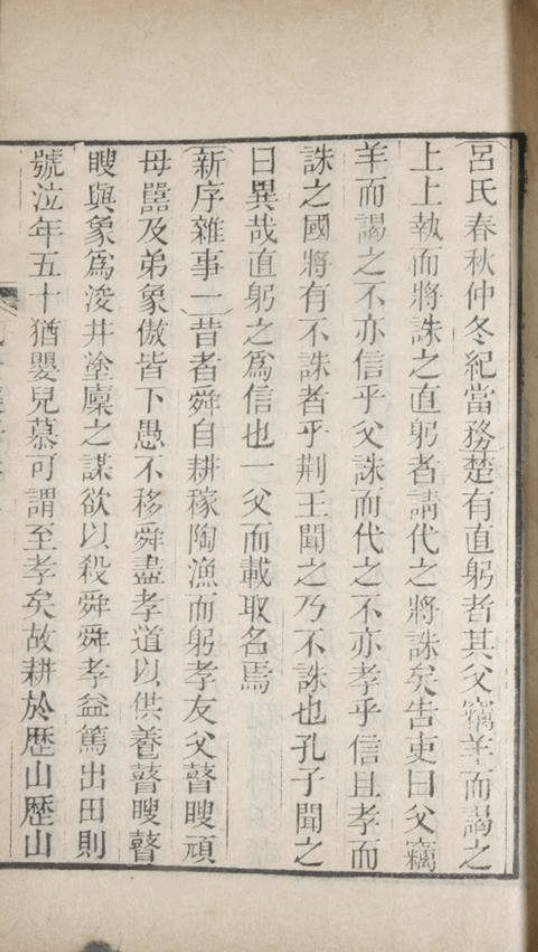 (呂氏春秋仲冬紀當務)楚有直躬者其父竊羊而謁之
上上執而將誅之直躬者請代之將誅矣告吏曰父竊
羊而謁之不亦信乎父誅而代之不亦孝乎信且孝而
誅之國將有不誅者乎荆王聞之乃不誅也孔子聞之
曰異哉直躬之爲信也一父而載取名焉
(新序雜事一)昔者舜自耕稼陶漁而躬孝友父瞽瞍頑
母嚚及弟象傲皆下愚不移舜盡孝道以供養瞽瞍瞽
瞍與象爲浚井塗廩之謀欲以殺舜舜孝益篤出田則
號泣年五十猶嬰兒慕可謂至孝矣故耕於歷山歷山